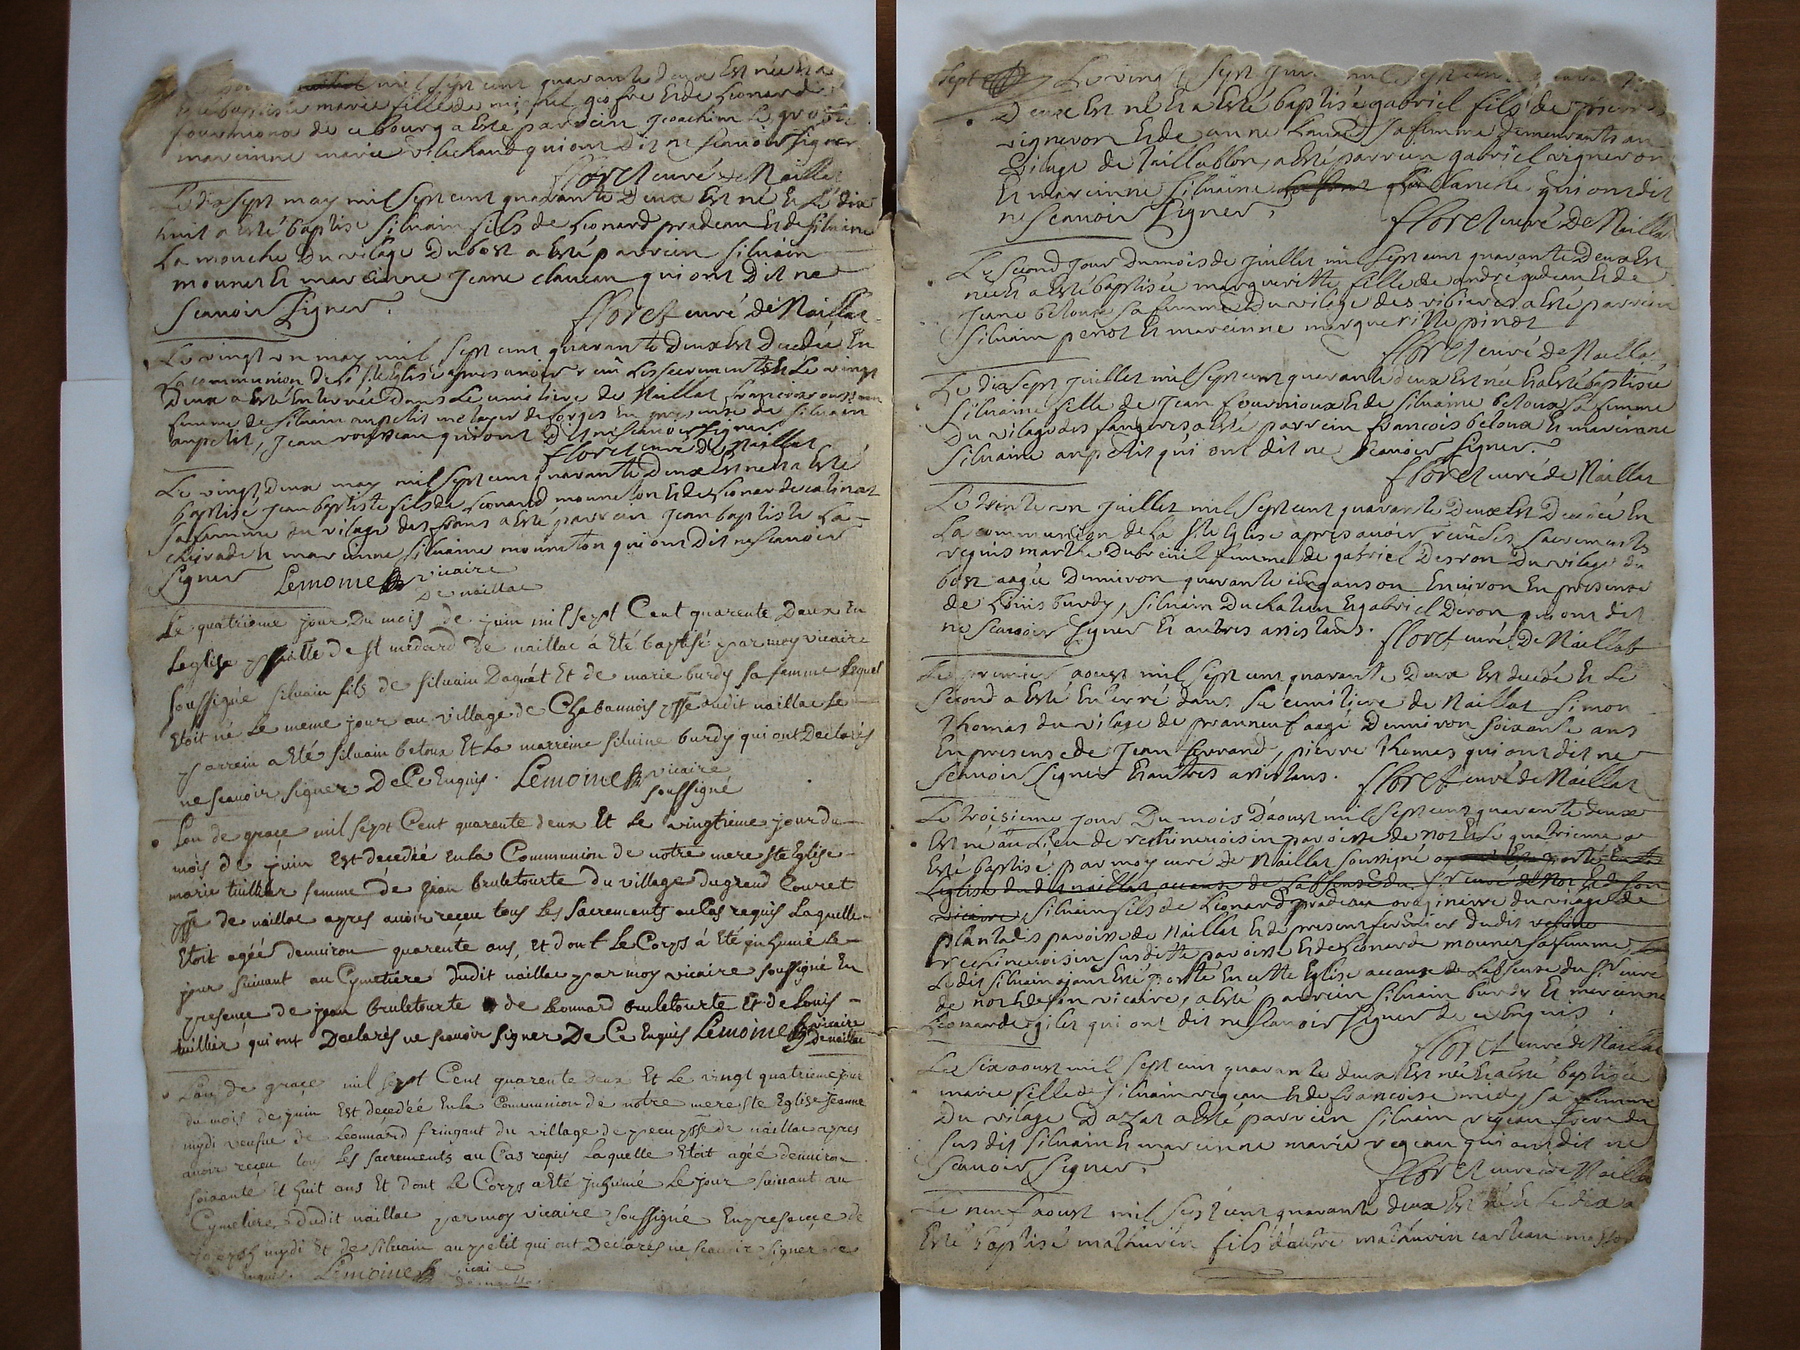 mil sept cent quarante deux Est née Et a
Esté baptisée marie fille de michel Et de Leonarde
fournioux de ce bourg a Esté parrein joachim
mareinne marie qui ont Dit ne Scauoir Signer
floret curé de Naillat
Le dix sept may mil sept cent quarante Deux Est né Et Le dix
huit a Esté baptisé Siluain fils de Leonard pradeau Et de Siluaine
La mouche Du vilage Du bost a Esté parrein Siluain
mounet Et mareinne jeane qui ont Dit ne
Scauoir Signer.
floret curé de Naillat
Le vingt un may mil sept cent quarante Deux Est Decedée En
La communion de La ste Eglise apres auoir reçû Les sacrements Et Le vingt
Deux a Esté Enterrée Dans Le cimetiere de Naillat francoise
femme de Siluain aupetit metayer de forges En presense de Siluain
aupetit, jean rousseau qui ont Dit ne Scauoir Signer
floret curé de Naillat
Le vingt Deux may mil sept cent quarante Deux Est né Et a Esté
baptisé jean baptiste fils de Leonard mouneton Et de Leonarde
sa femme du vilage des a Esté parrein jean baptiste La
Et mareinne Siluaine mouneton qui ont Dit ne Scauoir
Signer Lemoine vicaire
De naillac
Le quatrieme jour Du mois de juin mil sept Cent quarente Deux En
Leglise psialle de st medard De naillac á Eté baptisé par moy vicaire
soussigné siluain fils de siluain Daguét Et de marie burdy sa femme Lequel
Etoit né Le meme jour au village de Chabannois psse audit naillac Le
parrein a Eté siluain betoux Et La marreine siluine burdy qui ont Declarés
ne scauoir signer De Ce Enquis. Lemoine vicaire
soussigné
Lan de grace mil sept Cent quarente deux Et Le vingtieme jour du
mois de juin Est decedée En La Communion de notre mere ste Eglise
marie tuillier femme de jean bruletourte du village du grand Couret
psse de naillac apres auoir reçeu tous Les Sacrements au Cas requis Laquelle
Etoit agée denuiron quarente ans, Et dont Le Corps á Eté inhumé Le
jour suiuant au Cymetiere dudit naillac par moy vicaire soussigné En
presence de jean bruletourte de Leonnard bruletourte Et de Louis
tuillier qui ont Declarés ne scauoir signer De Ce Enquis Lemoine vicaire
De naillac
Lan de grace mil sept Cent quarente deux Et Le vingt quatrieme jour
du mois de juin Est decedée En La Communion de notre mere ste Eglise jeanne
mydi veufue de Leonnard fringant du village de psse de naillac apres
auoir reçeu tous Les sacrements au Cas requis Laquelle Etoit agée denuiron
soixante Et huit ans Et dont Le Corps a Eté inhumé Le jour suiuant au
Cymetiere dudit naillac par moy vicaire soussigné En presence de
joseph mydi Et de siluain aupetit qui ont Declarés ne scauoir signer de
Enquis. Lemoine vicaire
Le vingt sept juin mil sept cent quarante
Deux Est né Et a Esté baptisé gabriel fils de pierre
vigneron Et de anne sa femme Demeurants au
vilage de taillablon, a Esté parrein gabriel vigneron
Et mareinne Siluaine blanche qui ont dit
ne Scauoir Signer,
floret curé de Naillat
Le Second jour Du mois de juillet mil sept cent quarante Deux Est
née Et a Esté baptisée margueritte fille de andré Et de
jeane betoux sa femme Du vilage des ribieres a Esté parrein
Siluain perot Et mareinne margueritte pinot
floret curé de Naillat
Le dix sept juillet mil sept cent quarante deux Est née Et a Esté baptisée
Siluaine fille de jean fournioux Et de Siluaine betoux sa femme
Du vilage des fougeres a Esté parrein francois betoux Et mareinne
Siluaine aupetit qui ont dit ne Scauoir Signer.
floret curé de Naillat
Le trente un juillet mil sept cent quarante Deux Est Decedée En
La communion de La ste Eglise apres auoir reçû les sacrements
requis marthe Dubreuil femme de gabriel Desron Du vilage du
bost aagée Denuiron quarante cinq ans ou Enuiron En presense
de Louis burdy, Siluain Duchatem Et gabriel Deron qui ont dit
ne Scauoir Signer Et autres assistants. floret curé De Naillat
Le premier aoust mil sept cent quarante Deux Est decedé Et Le
Second a Esté Enterré dans Le cimitiere de Naillat Simon
Thomas du vilage de aagé Denuiron Soixante ans
En presense de jean ferrand, pierre thomas qui ont dit ne
Scauoir Signer Et autres assistans. floret curé de Naillat
Le troisieme jour Du mois D'aoust mil sept cent quarante deux
Est né au Lieu de paroisse de not Et Le quatrieme a
Esté baptisé par moy curé de Naillat Soussigné
Leglise dudit naillat acause de Labsense du sr curé de Not Et de son
vicaire, Siluain fils de Leonard pradeau originaire du vilage de
plantadis paroisse de Naillat Et de present fermier dudit
susditte paroisse Et de Leonarde mounet sa femme
Ledit Siluain ayant Eté porté En cette Eglise acause de Labsense du Sr curé
de not Et de son vicaire, a Esté parrein Siluain burdy Et mareinne
Leonarde gilet qui ont dit ne Scauoir Signer de ce Enquis.
floret curé de Naillat
Le six aoust mil sept cent quarante deux Est née Et a Esté baptisée
marie fille de Siluain vigeau Et de francoise midy sa femme
Du vilage D'azat a Esté parrein Siluain vigeau frere du
Susdit Siluain Et mareinne marie vigeau qui ont dit ne
Scauoir Signer,
floret curé de Naillat
Le neuf aoust mil sept cent quarante deux Est né Et Le dix a
Esté baptisé mathurin fils d'autre mathurin